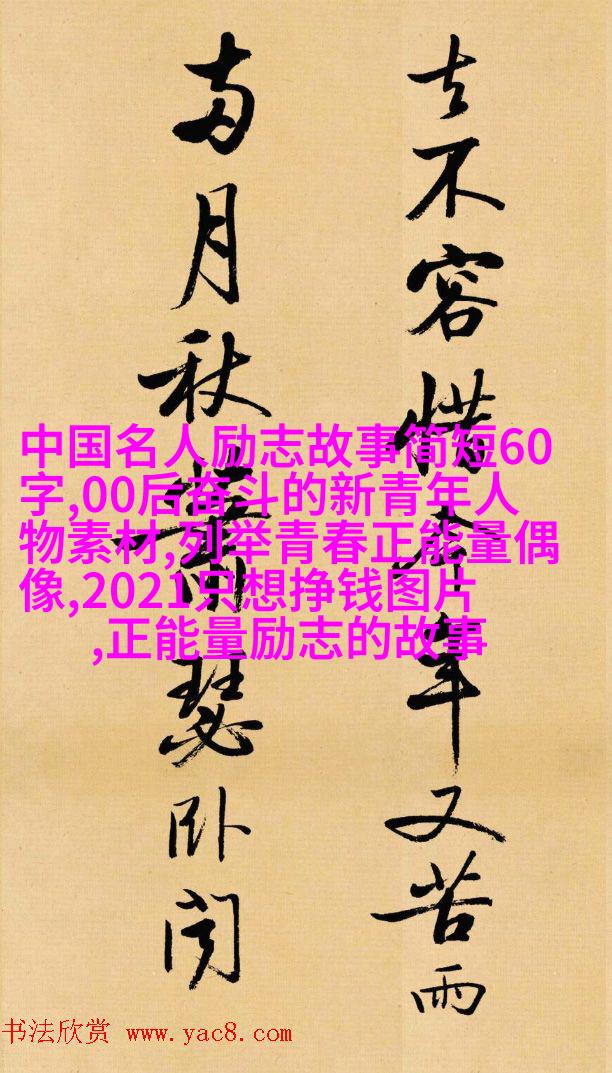 去不容惜今年又苦雨
兩月秋蕭瑟卧聞
中国名人励志故事简短60
字,00后奋斗的新青年人
物素材,列举青春正能量偶
像,2021只想挣钱图片
,正能量励志的故事
书法欣赏 www.yac8.com